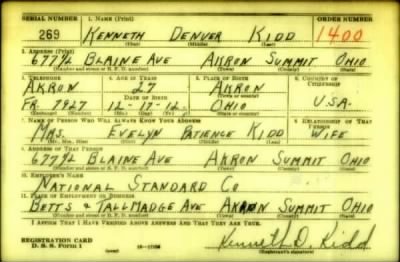 SERIAL NUMBER 1. NAME (Print) ORDER NUMBER
269 KENNETH DENVER KIDD 1400
(First) (Middle) (Last)
2. ADDRESS (Print)
677½ BLAINE AVE AKRON SUMMIT OHIO
(Number and street or R. F. D. number) (Town) (County) (State)
3. TELEPHONE 4. AGE IN YEARS 5. PLACE OF BIRTH 6. COUNTRY OF CITIZENSHIP
AKRON 27 AKRON
DATE OF BIRTH (Town or county)
FR. 7927 12-17-12 OHIO U.S.A.
(Exchange) (Number) (Mo.) (Day) (Yr.) (State or country)
7. NAME OF PERSON WHO WILL ALWAYS KNOW YOUR ADDRESS 8. RELATIONSHIP OF THAT PERSON
MRS. EVELYN PATIENCE KIDD WIFE
(Mr., Mrs., Miss) (First) (Middle) (Last)
9. ADDRESS OF THAT PERSON
677½ BLAINE AVE AKRON SUMMIT OHIO
(Number and street or R. F. D. number) (Town) (County) (State)
10. EMPLOYER'S NAME
NATIONAL STANDARD CO
11. PLACE OF EMPLOYMENT OR BUSINESS
BETTS & TALLMADGE AVE AKRON SUMMIT OHIO
(Number and street or R. F. D. number) (Town) (County) (State)
I AFFIRM THAT I HAVE VERIFIED ABOVE ANSWERS AND THAT THEY ARE TRUE.
REGISTRATION CARD
D. S. S. Form 1 (over) Kenneth D. Kidd
(Registrant's signature)